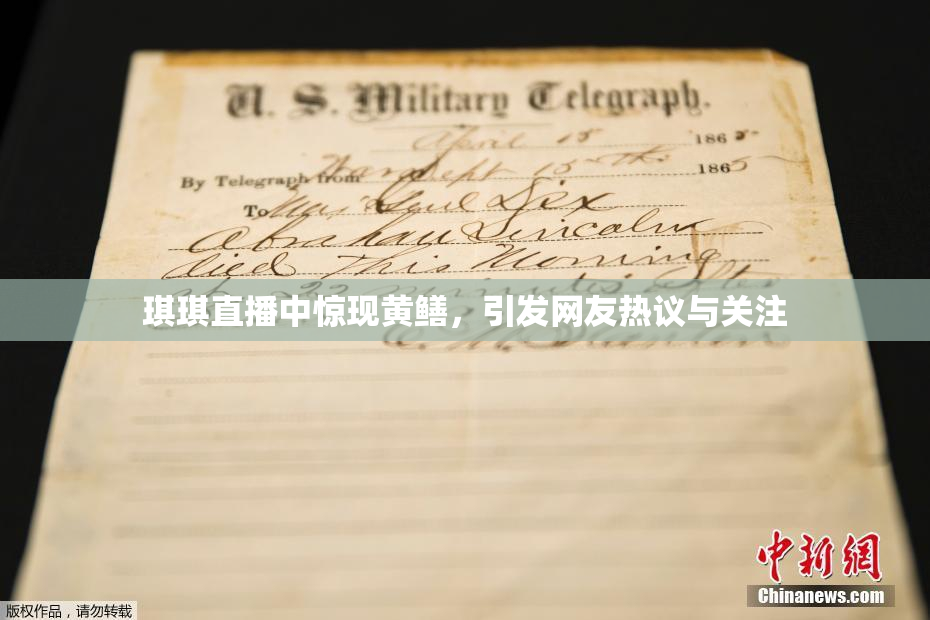 U. S. Military Telegraph.
April 15 1865
By Telegraph from War Dept 15th 1865
To Maj Genl Dix
Abraham Lincoln
died This Morning
at 22 minutes after
琪琪直播中惊现黄鳝，引发网友热议与关注
E. M. Stanton
中新网
Chinanews.com
版权作品，请勿转载